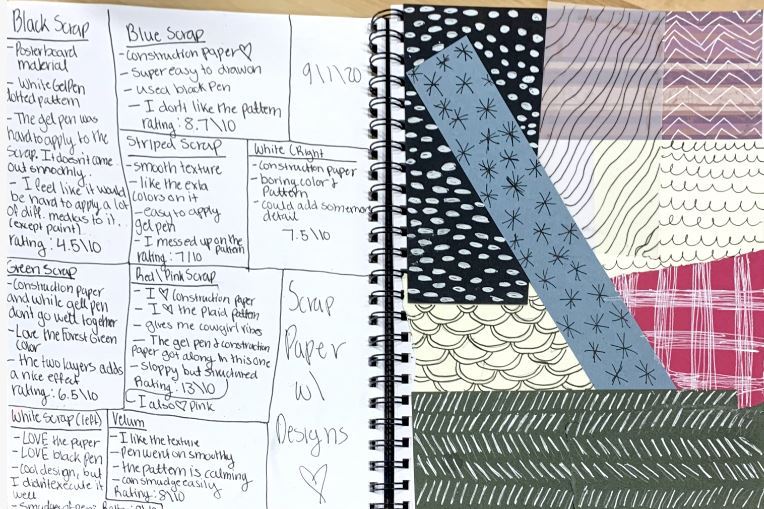 Black Scrap
- Posterboard
material
- White Gel Pen
dotted pattern
- The gel pen was
hard to apply to the
scrap. It doesnt come
out smoothly.
- I feel like it would
be hard to apply a lot
of diff. medias to it.
(except paint)
rating: 4.5/10
Blue Scrap
- Construction paper ♡
- super easy to draw on
- used black pen
- I don't like the pattern
rating: 8.7\10
9/1/20
Striped Scrap
- smooth texture
- like the extra
colors on it
- easy to apply
gel pen
- I messed up on the
pattern
rating: 7/10
White (Right
- Construction paper
- boring color &
Pattern
- could add some more
detail
7.5\10
Green Scrap
- Construction paper
and white gell pen
dont go well together
- Love the forest Green
color
- the two layers adds
a nice effect
rating: 6.5/10
Red \ Pink Scrap
- I ♡ Construction paper
- I ♡ the plaid pattern
- gives me cowgirl vibes
- The gel pen & construction
Paper got along in this one
- sloppy but structured
Rating: 13\10
- I also ♡ pink
Scrap
Paper
w/
Designs
♡
White Scrap (left)
- LOVE the paper
- LOVE black pen
- Cool design, but
I didnt execute it
well
- Smudges of pen
Velum
- I like the texture
- Pen went on smoothly
- the pattern is calming
- can smudge easily
Rating: 8\10